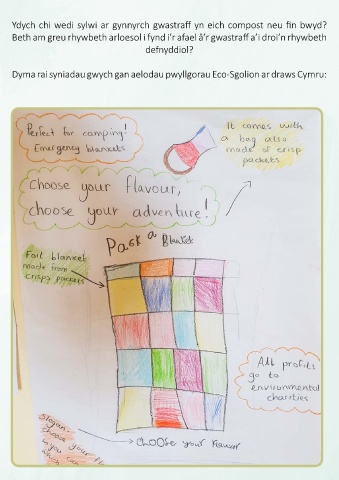 Ydych chi wedi sylwi ar gynnyrch gwastraff yn eich compost neu fin bwyd?
Beth am greu rhywbeth arloesol i fynd i'r afael â'r gwastraff a'i droi'n rhywbeth
defnyddiol?
Dyma rai syniadau gwych gan aelodau pwyllgorau Eco-Sgolion ar draws Cymru:
Perfect for camping!
Emergency blankets
It comes with
a bag also
made of crisp
packets
Choose your flavour,
choose your adventure!
Pack a Blanket
Foil blanket
made from
crisps packets
All profits
go to
environmental
charities
Slogan:
choose your
you can
choose your flavour